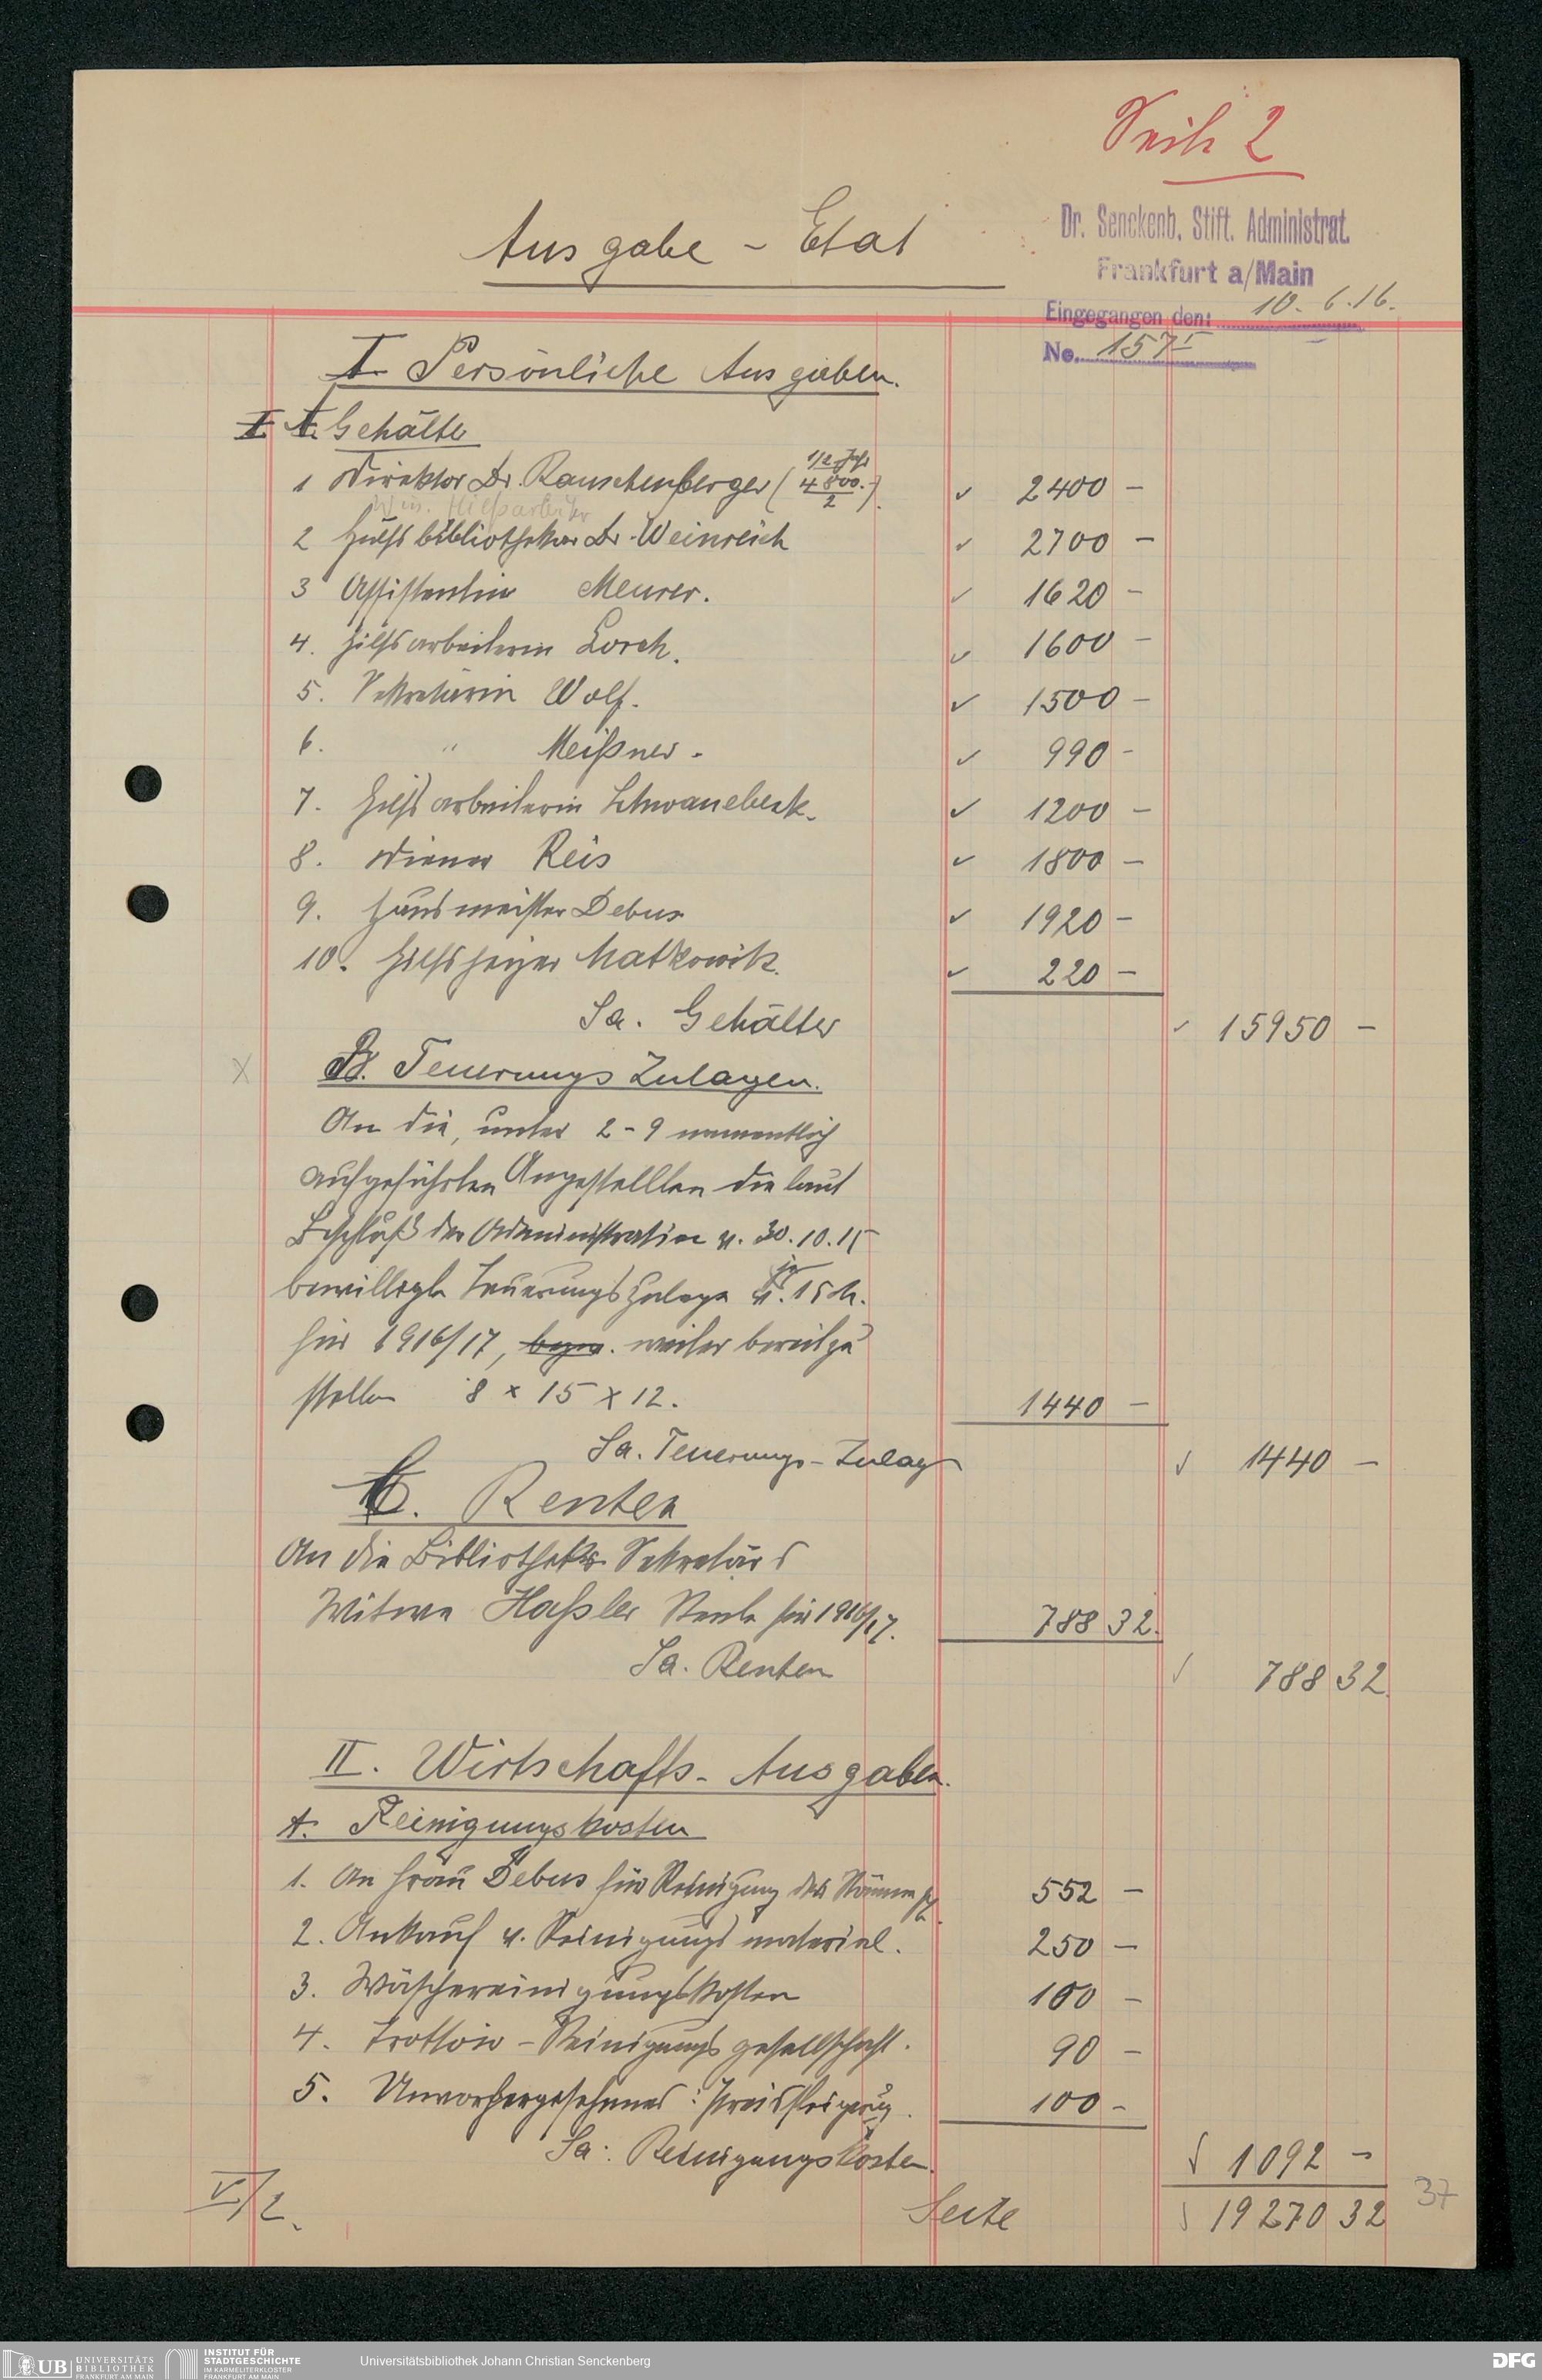 Seite 2
Dr. Senckenb. Stift. Administrat.
Frankfurt a/Main
Eingegangen den: 10. 6. 16.
No. 157
Ausgabe - Etat
I. Persönliche Ausgaben.
A. Gehälter
1 Direktor Dr. Rauschenberger ( 1/2 Jahr 4800.- / 2 ) 2400 -
Wiss. Hilfsarbeiter
2 Hülfsbibliothekar Dr. Weinreich 2700 -
3 Assistentin Meurer. 1620 -
4. Hilfsarbeiterin Lorch. 1600 -
5. Sekretärin Wolf. 1500 -
6. " Meißner. 990 -
7. Hilfsarbeiterin Schwanebeck. 1200 -
8. Diener Reis 1800 -
9. Hausmeister Debus 1920 -
10. Hilfsheizer Matkowik. 220 -
Sa. Gehälter 15950 -
B. Teuerungs Zulagen.
An die, unter 2-9 namentlich
aufgeführten Angestellten die laut
Beschluß der Administration v. 30.10.15
bewilligte Teuerungszulage v. je 15 M.
für 1916/17, bezw. weiter bereitzu
stellen 8 x 15 x 12. 1440 -
Sa. Teuerungs-Zulag 1440 -
C. Renten
An die Bibliotheks Sekretärs
Witwe Haßler Rente für 1916/17. 788 32.
Sa. Renten 788 32
II. Wirtschafts-Ausgaben.
A. Reinigungskosten
1. An Frau Debus für Reinigung der Räume pp. 552 -
2. Ankauf v. Reinigungsmaterial. 250 -
3. Wäschereinigungskosten 100 -
4. Trottoir-Reinigungsgesellschaft. 90 -
5. Unvorhergesehenes: Preissteigerung. 100 -
Sa: Reinigungskosten. 1092 -
Seite 19270 32
V/2.
37
UB UNIVERSITÄTS
BIBLIOTHEK
FRANKFURT AM MAIN
INSTITUT FÜR
STADTGESCHICHTE
IM KARMELITERKLOSTER
FRANKFURT AM MAIN
Universitätsbibliothek Johann Christian Senckenberg
DFG